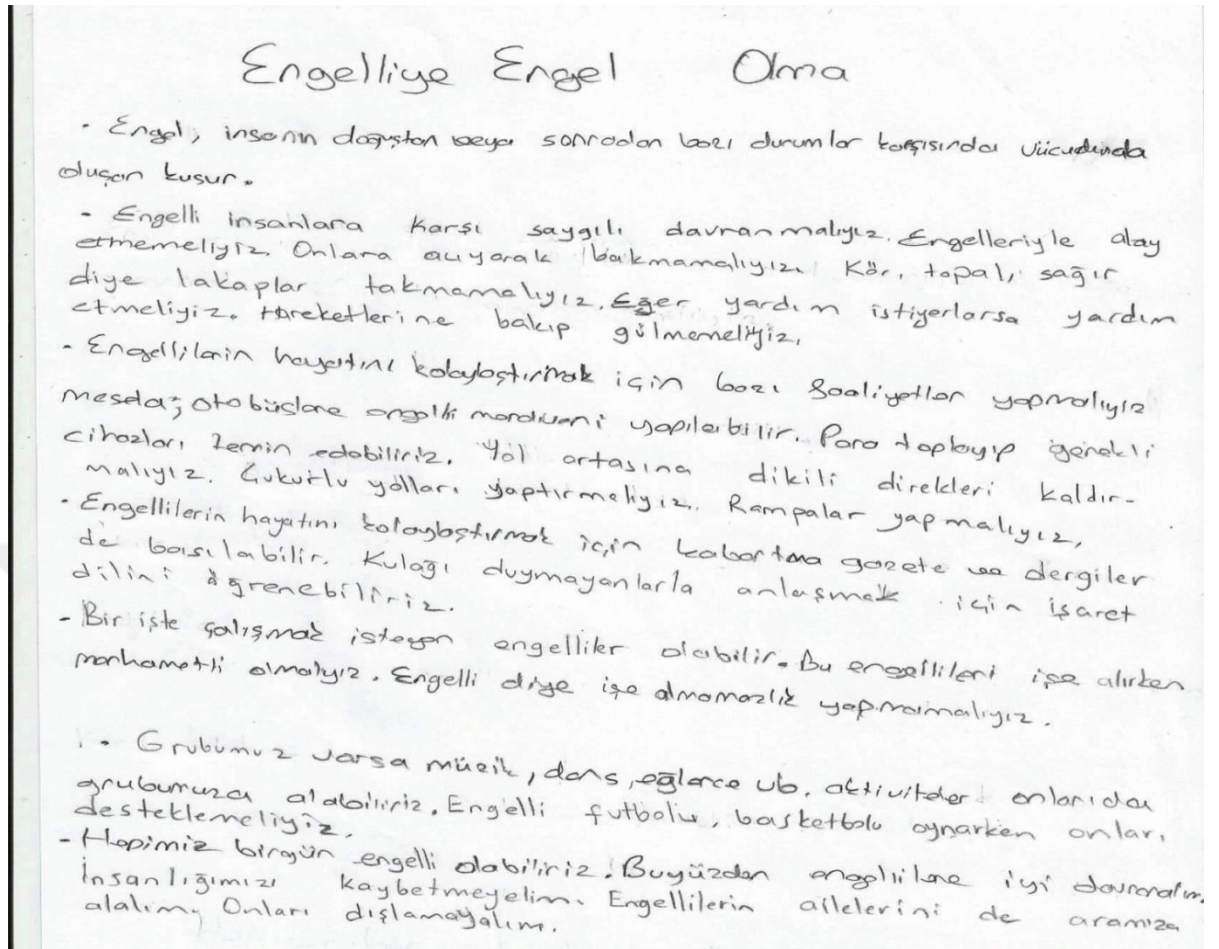 Engelliye Engel Olma
- Engel, insanın doğuştan veya sonradan bazı durumlar karşısında vücudunda
oluşan kusur.
- Engelli insanlara karşı saygılı davranmalıyız. Engelleriyle alay
etmemeliyiz. Onlara acıyarak bakmamalıyız. Kör, topal, sağır
diye lakaplar takmamalıyız. Eğer yardım istiyorlarsa yardım
etmeliyiz. Hareketlerine bakıp gülmemeliyiz.
- Engellilerin hayatını kolaylaştırmak için bazı faaliyetler yapmalıyız
mesela; otobüslere engelli merdiveni yapılabilir. Para toplayıp gerekli
cihazları temin edebiliriz. Yol ortasına dikili direkleri kaldır-
malıyız. Çukurlu yolları yaptırmalıyız. Rampalar yapmalıyız.
- Engellilerin hayatını kolaylaştırmak için kabartma gazete ve dergiler
de basılabilir. Kulağı duymayanlarla anlaşmak için işaret
dilini öğrenebiliriz.
- Bir işte çalışmak isteyen engelliler olabilir. Bu engellileri işe alırken
merhametli olmalıyız. Engelli diye işe almamazlık yapmamalıyız.
- Grubumuz varsa müzik, dans, eğlence vb. aktiviteler onlarıda
grubumuza alabiliriz. Engelli futbolu, basketbolu oynarken onları
desteklemeliyiz.
- Hepimiz birgün engelli olabiliriz. Buyüzden engellilere iyi davranalım.
İnsanlığımızı kaybetmeyelim. Engellilerin ailelerini de aramıza
alalım. Onları dışlamayalım.